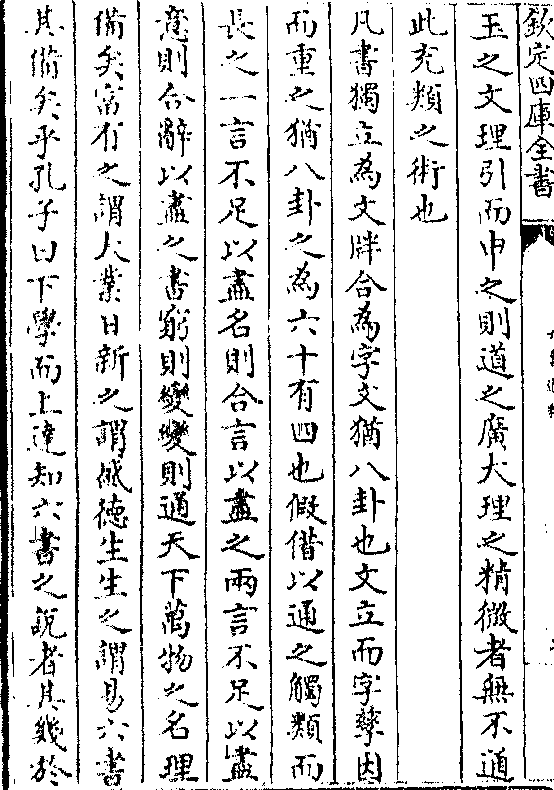 欽定四庫全書
玉之文理引而申之則道之廣大理之精微者無不通
此充類之術也
凡書獨立為文牉合為字文猶八卦也文立而字孳因
而重之猶八卦之為六十有四也假借以通之觸類而
長之一言不足以盡名則合言以盡之兩言不足以盡
意則合辭以盡之書窮則變變則通天下萬物之名理
備矣富有之謂大業日新之謂盛德生生之謂易六書
其備矣乎孔子曰下學而上達知六書之說者其幾於